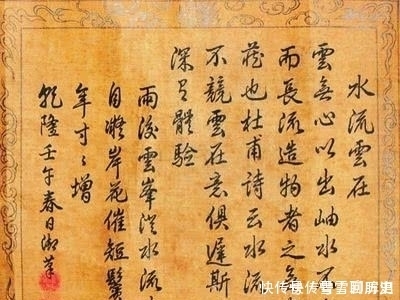 水流雲在
雲無心以出岫水不
而長流造物者之無
藏也杜甫詩云水流
不競雲在意俱遲斯
深足體驗
雨後雲峯澄水流
自凝岸花催短鬢
年寸〻增
乾隆壬午春日御筆
快传号